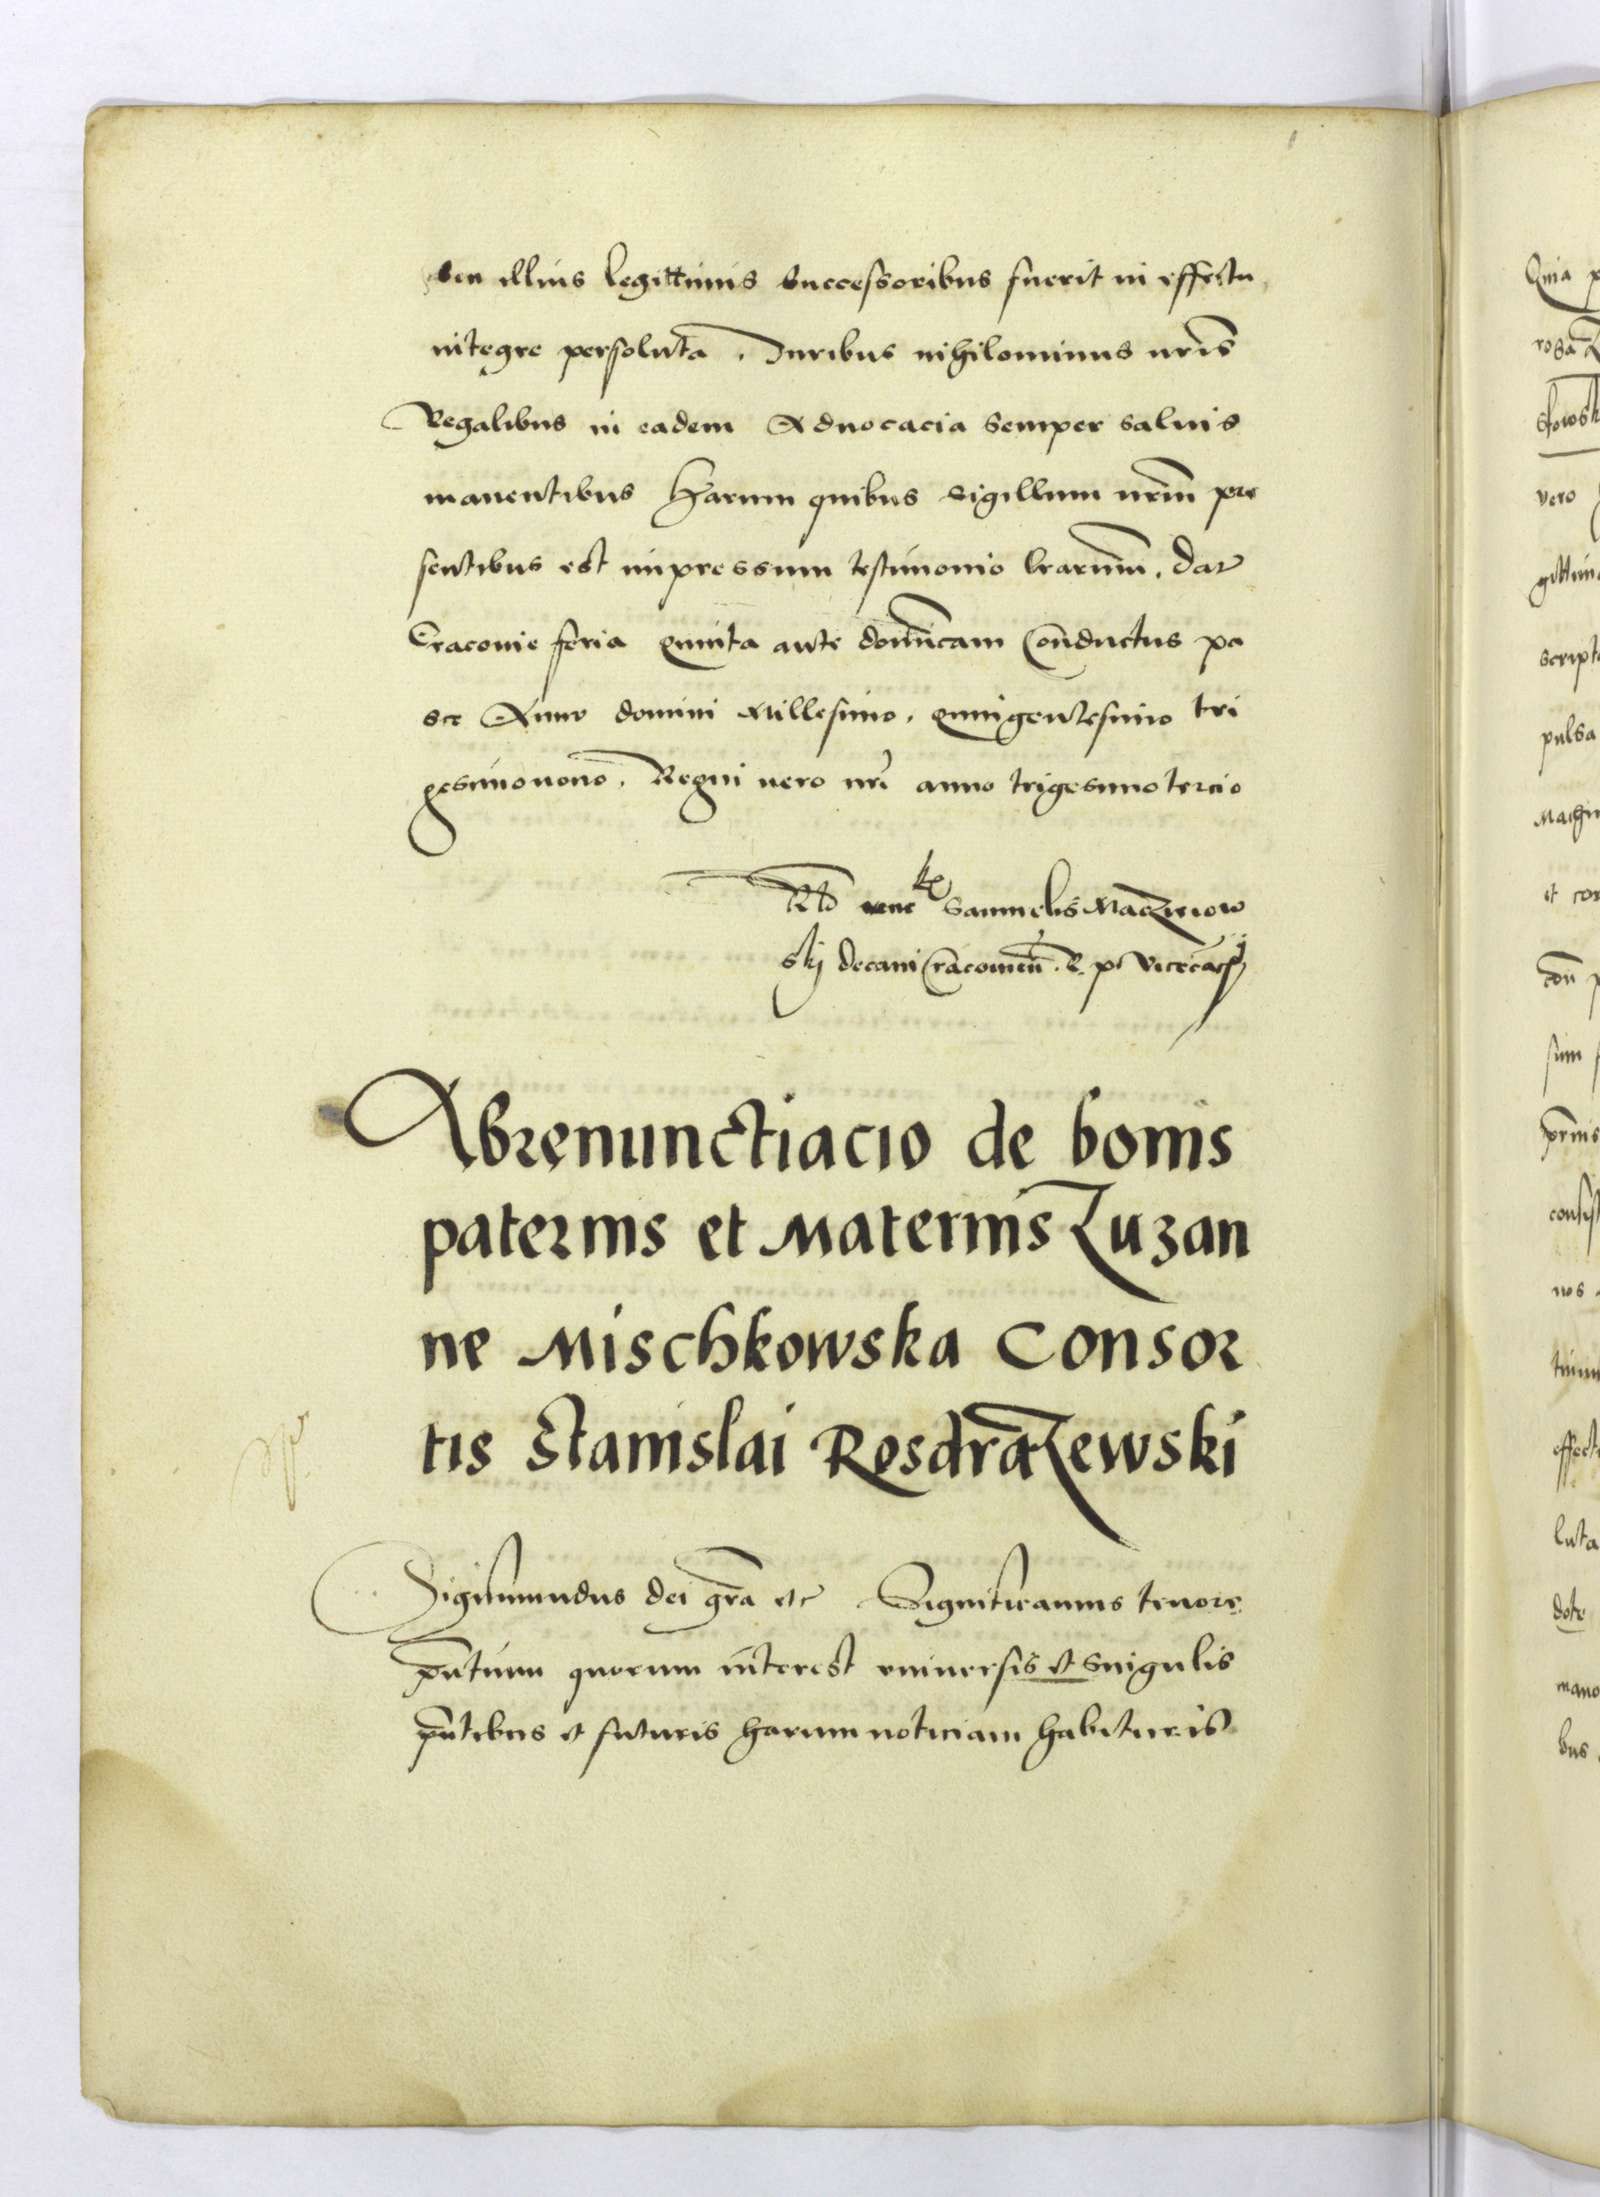 seu illius legittimis successoribus fuerit in effectu
integre persoluta. Iuribus nihilominus nris
Regalibus in eadem Aduocacia semper saluis
manentibus Harum quibus sigillum nrm pre
sentibus est impressum testimonio lrarum. Dat
Cracouie feria quinta ante dominicam Conductus pa
sce Anno domini Millesimo. quingentesimo tri
gesimonono. Regni vero nri anno trigesimotercio
Rlo vene Samuelis Maczieiow
skj decani Cracouien. R. p. Vicecan
Abrenunctiacio de bonis
paternis et Maternis Zuzan
ne Mischkowska Consor
tis Stanislai RosdraZewski
Sigismundus dei gra etc Significamus tenore
pntium quorum interest vniuersis et singulis
pntibus et futuris harum noticiam habituris
Quia p
rosa
skowsk
vero
gittim
script
pulsa
Machin
et con
con p
sum
prmis
consist
nos
effect
luta
dote
mano
bus